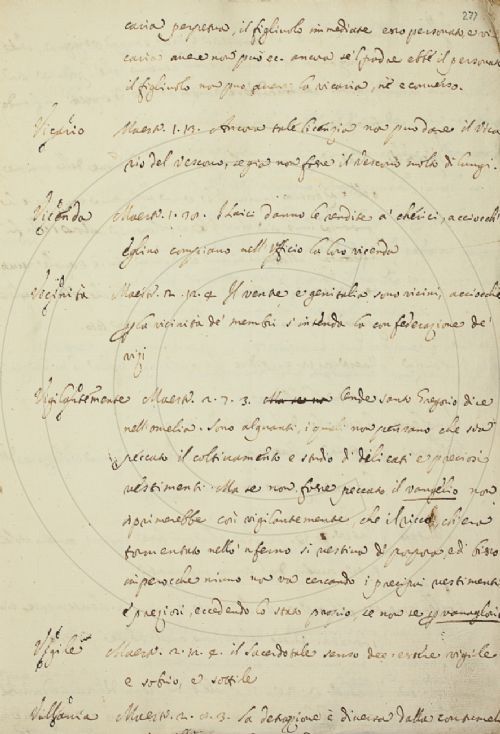 277
caria perpetua, il figliuolo immediate esso personato, e vi
caria avere non può ec. ancora se 'l padre ebbe il personato
il figliuolo non può avere la vicaria, nè e converso.
Vicario Maestr. 1. 13. Ancora tale licenzia non può dare il Vica
rio del Vescovo, se già non fosse il Vescovo molto di lungi.
Vicenda Maestr. 1. 70. I laici danno le rendite a' cherici, acciocch'
eglino compiano nell'Ufficio la loro vicenda
Vicinità Maestr. 2. 12. 4 Il ventre e genitalia sono vicini, acciocchè
p la vicinità de' membri s'intenda la confederazione de'
vizj
Vigilantemente Maestr. 2. 7. 3. Onde santo Gregorio dice
nell'omelia. Sono alquanti, i quali non pensano che sia
peccato il coltivamento e studio di delicati e preziosi
vestimenti. Ma se non fosse peccato il vangelio non
sprimerebbe così vigilantemente, che il ricco, ch'era
tormentato nello 'nferno si vestiva di porpora, e di bisso
imperocchè niuno non va cercando i precipui vestimenti
e preziosi, eccedendo lo stato proprio, se non se p vanagloria
Vigile Maestr. 2. 12. 4. il sacerdotale senso dee essere vigile
e sobrio, e sottile
Villania Maestr. 2. 8. 3. la detrazione è diversa dalla contumel